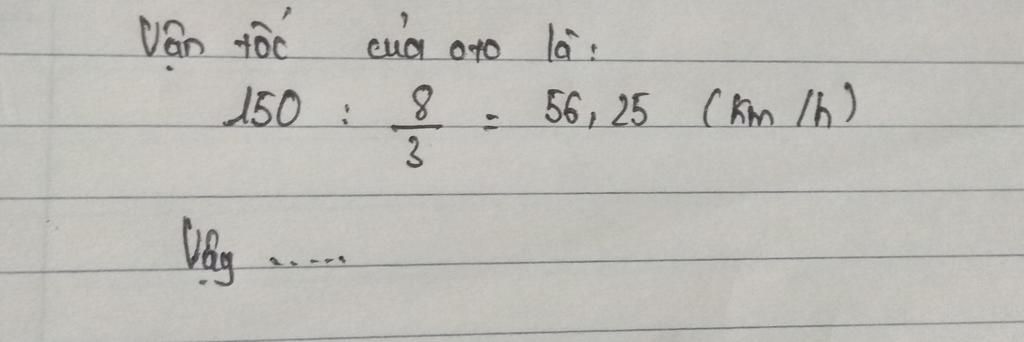 Vận tốc của oto là:
150 : 8/3 = 56,25 (km/h)
Vậy .....